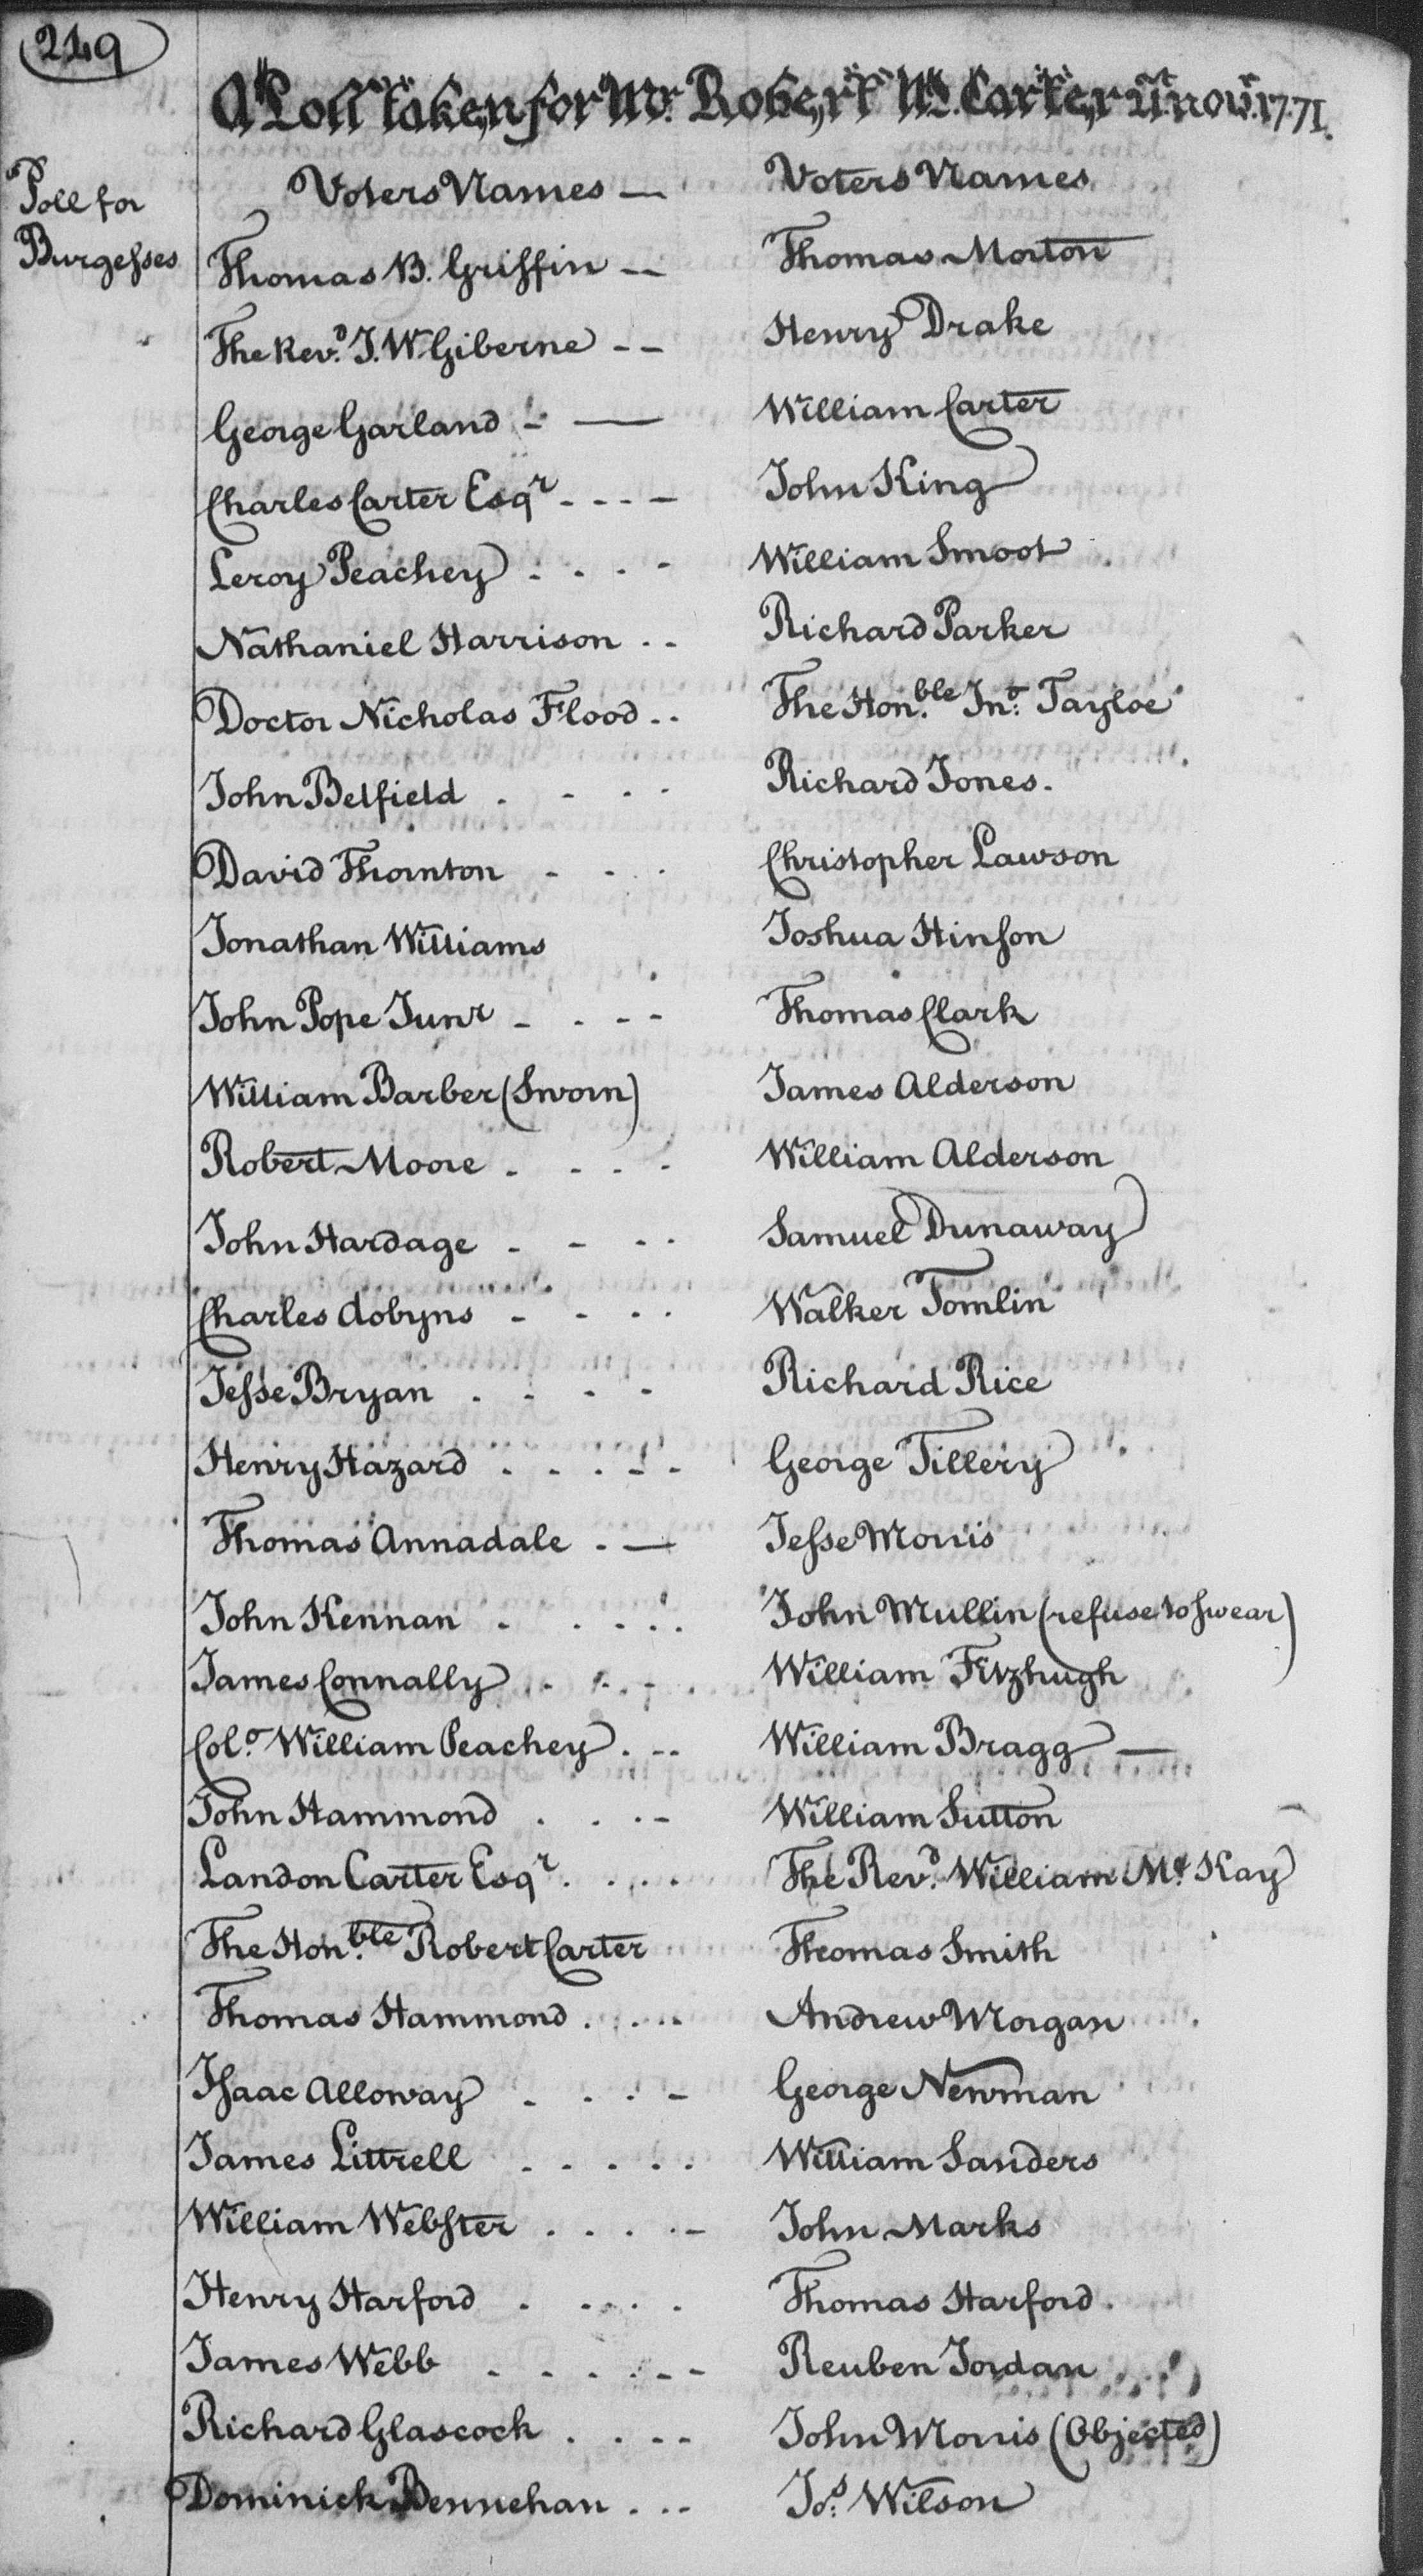 249
A Poll taken for Mr. Robert W. Carter 21st nov.r 1771.
Poll for
Burgesses
Voters Names —
Thomas B. Griffin --
The Revd. I. W. Giberne --
George Garland - —
Charles Carter Esqr - - - -
Leroy Peachey . . . -
Nathaniel Harrison . .
Doctor Nicholas Flood . .
John Belfield . - . .
David Thornton - . .
Jonathan Williams
John Pope Junr - . - -
William Barber (Sworn)
Robert Moore . . . .
John Hardage . - . .
Charles dobyns - - . .
Jesse Bryan . . - -
Henry Hazard . . . . .
Thomas Annadale . —
John Kennan . . . . .
James Connally . . . -
Colo. William Peachey . --
John Hammond . . . -
Landon Carter Esqr . . . .
The Honble. Robert Carter
Thomas Hammond . . . .
Isaac Alloway . . . -
James Littrell . . . . .
William Webster . . . . -
Henry Harford . . . . .
James Webb - . . . - -
Richard Glascock . . . -
Dominick Bennehan . . .
Voters Names
Thomas Morton
Henry Drake
William Carter
John King
William Smoot
Richard Parker
The Honble. Jno. Tayloe
Richard Jones.
Christopher Lawson
Joshua Hinson
Thomas Clark
James Alderson
William Alderson
Samuel Dunaway
Walker Tomlin
Richard Rice
George Tillery
Jesse Morris
John Mullin (refuse to swear)
William Fitzhugh
William Bragg —
William Sutton
The Revd. William Mc. Kay
Thomas Smith
Andrew Morgan
George Newman
William Sanders
John Marks
Thomas Harford.
Reuben Jordan
John Morris (Objected)
Jos. Wilson